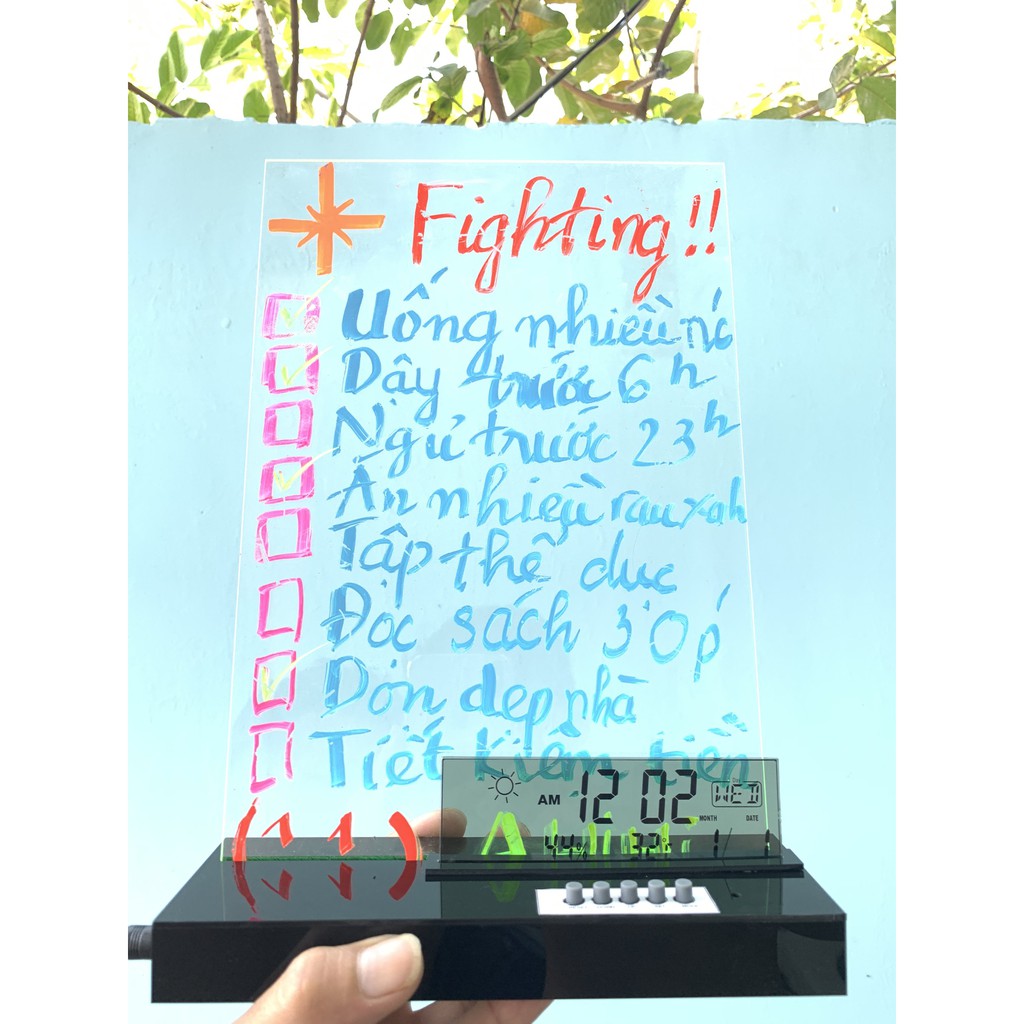 Fighting!!
Uống nhiều nc
Dậy trước 6h
Ngủ trước 23h
Ăn nhiều rau xanh
Tập thể dục
Đọc sách 30p
Dọn dẹp nhà
Tiết kiệm tiền
AM 12 02 WED
MONTH DATE
44% 32°c 1/ 1